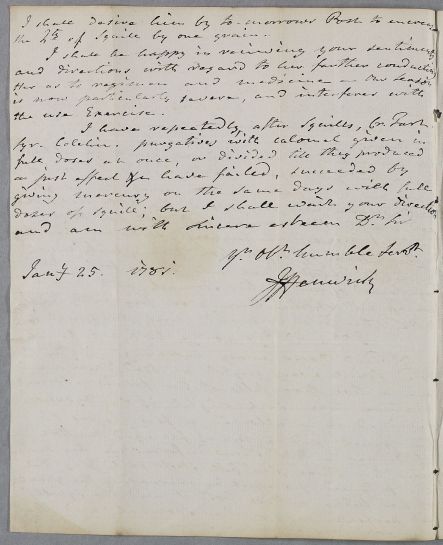 I shall desire him by to-morrows Post to increase
the Qty of Squills by one grain.
I shall be happy in receiving your sentiments
and directions with regard to his farther conducting
as to regimen and medicine - Our Season
is now particularly severe, and interferes with
the use Exercise.
I have repeatedly, after Squills, Cr. Tart.
Syr. Colchic. purgatives with calomel given in
full doses at once, or divided till they produced
a just effect have failed, succeeded by
giving mercury on the same days with full
doses of Squills; but I shall wait your directions
and am with sincere esteem Dr. Sir
Yr. Obt. humble Servt.
Jany 25. 178
JFenwick